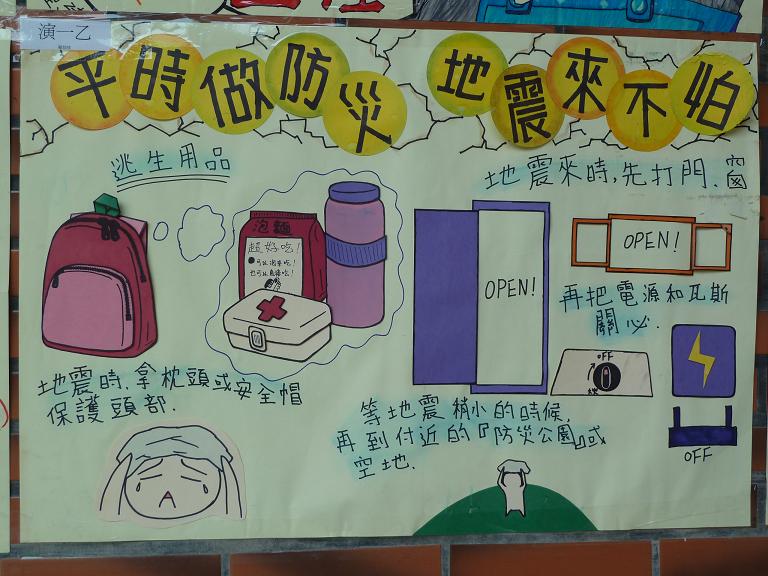 演一乙
平時做防災 地震來不怕
逃生用品
泡麵
超好吃!
地震來時,先打門、窗
OPEN!
OPEN!
再把電源和瓦斯
關心.
OFF
OFF
地震時,拿枕頭或安全帽
保護頭部.
等地震稍小的時候,
再到付近的『防災公園』或
空地.